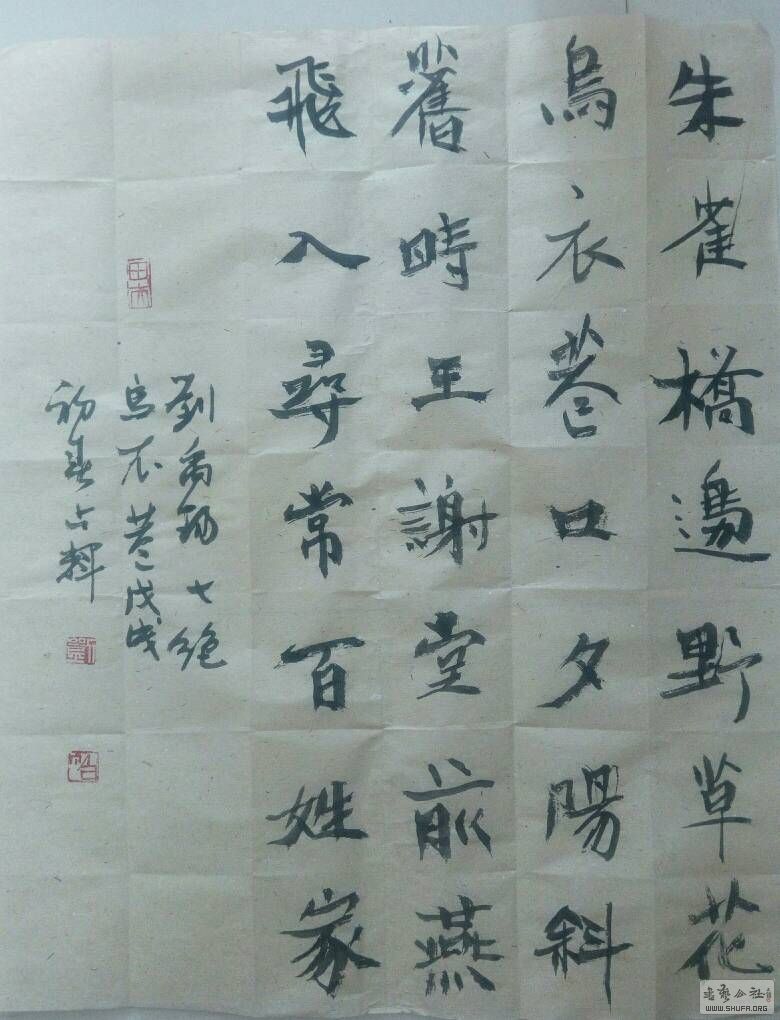 朱雀橋邊野草花
烏衣巷口夕陽斜
舊時王謝堂前燕
飛入尋常百姓家
劉禹錫七絕
烏衣巷戊戌
初春占輝
书艺公社
WWW.SHUFA.ORG